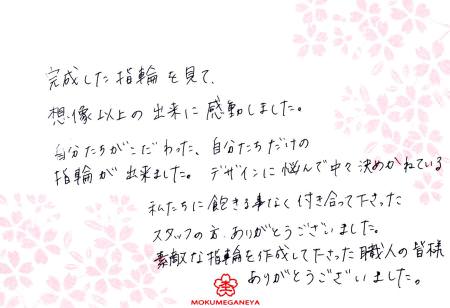 完成した指輪を見て、
想像以上の出来に感動しました。
自分たちがこだわった、自分たちだけの
指輪が出来ました。デザインに悩んで中々決めかねている
私たちに飽きる事なく付き合って下さった
スタッフの方、ありがとうございました。
素敵な指輪を作成して下さった職人の皆様
ありがとうございました。
MOKUMEGANEYA